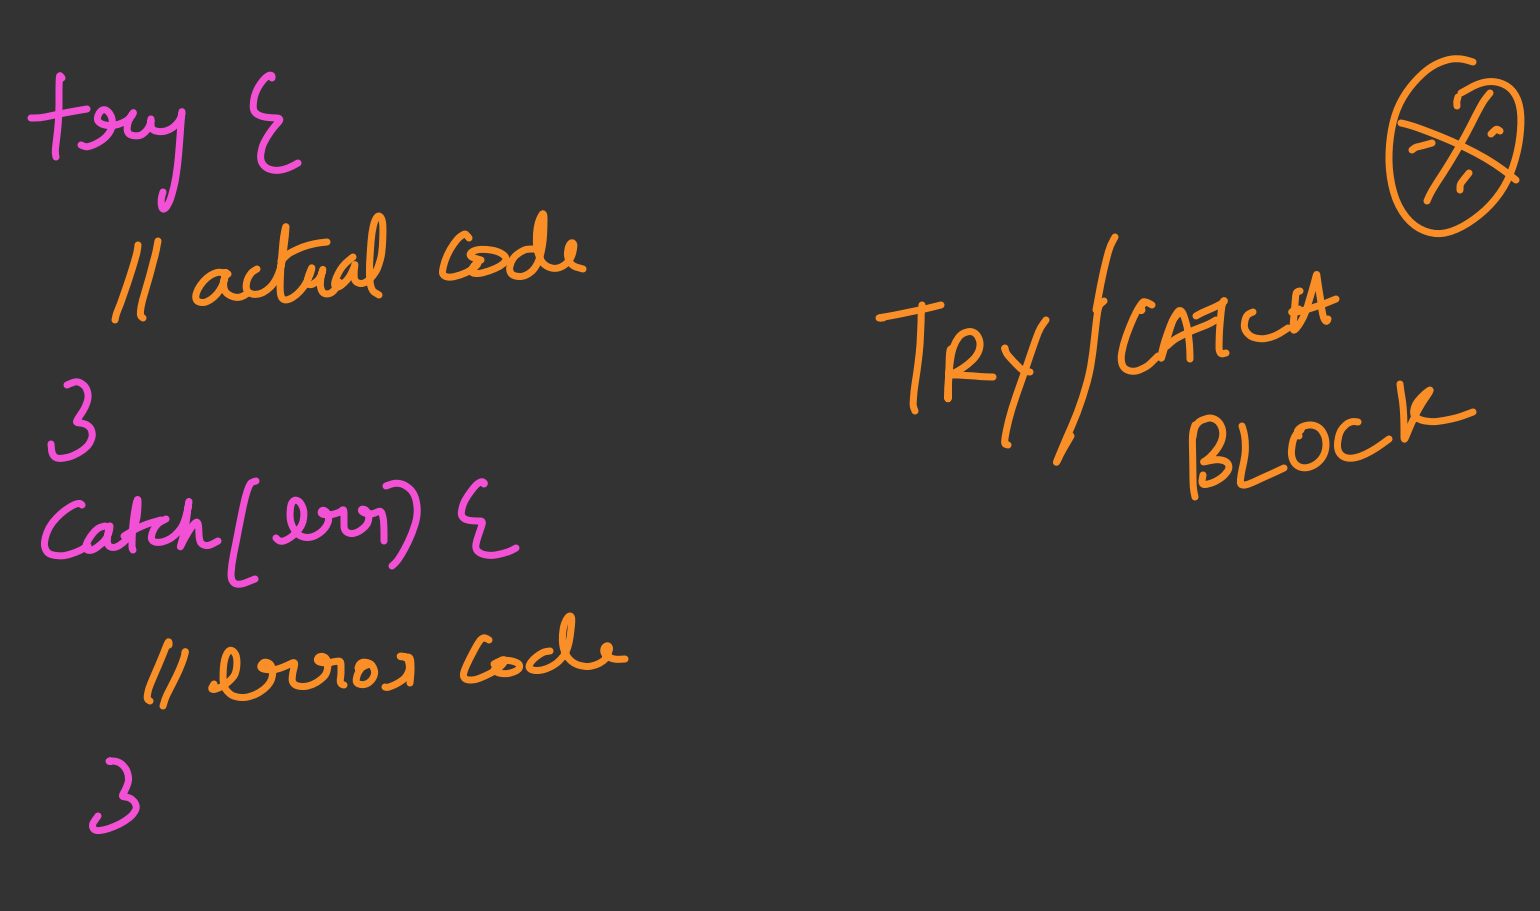 try {
// actual code
}
catch(err) {
// error code
}
TRY/CATCH
BLOCK